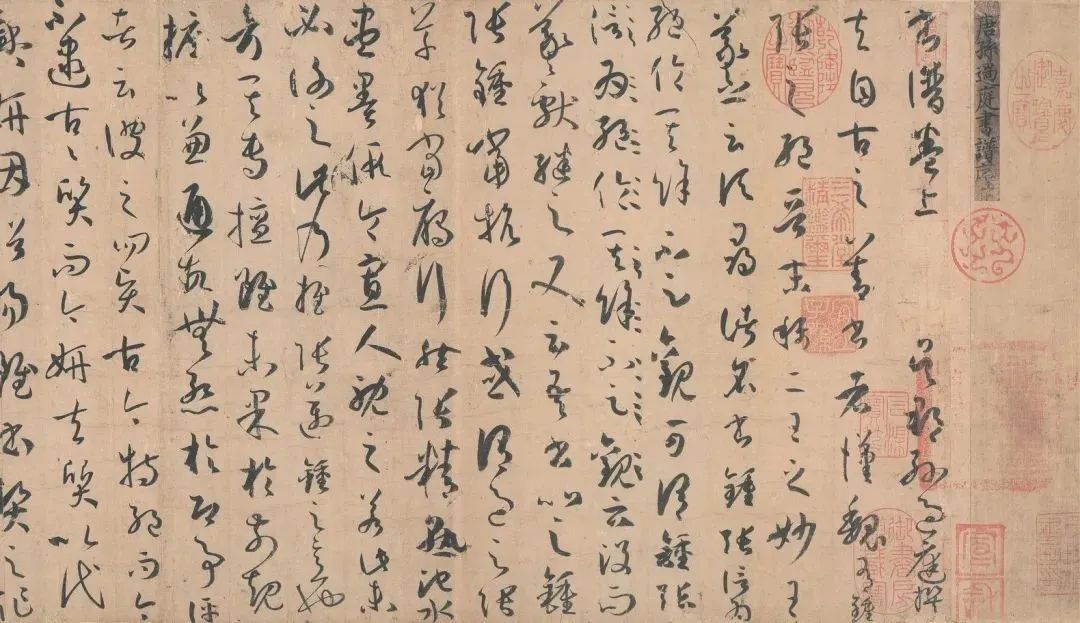 嘉慶御覽之寶
唐孫過庭書譜序
宣和
書譜卷上 吳郡孫過庭撰
夫自古之善書者漢魏有鍾
張之絕晉末稱二王之妙王
羲之云頃尋諸名書鍾張信為
絕倫其餘不足觀可謂鍾張
信為絕倫其餘不足觀云沒而
羲獻繼之又云吾書比之鍾
張鍾當抗行或謂過之張
草猶當鴈行然張精熟池水
盡墨假令寡人耽之若此未
必謝之此乃推張邁鍾之意也
考其專擅雖未果於前規
摭以兼通故無慙於即事評
者云彼之四賢古今特絕而今
不逮古古質而今妍夫質以代
興妍因俗易雖書契之作
乾隆御覽之寶
三希堂精鑑璽
宜子孫